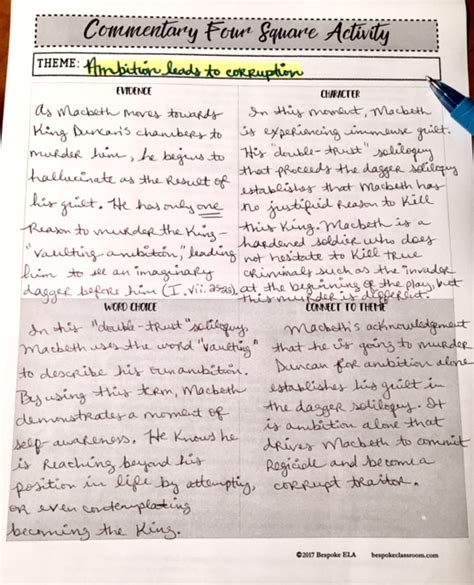 Commentary Four Square Activity
THEME: Ambition leads to corruption
EVIDENCE
As Macbeth moves towards
King Duncan's chambers to
murder him, he begins to
hallucinate as the result of
his guilt. He has only one
reason to murder the King-
"vaulting-ambition," leading
him to see an imaginary
dagger before him (I.vii.25-28).
CHARACTER
In this moment, Macbeth
is experiencing immense guilt.
His "double-trust" soliloquy
that proceeds the dagger soliloquy
establishes that Macbeth has
no justified reason to kill
this King. Macbeth is a
hardened soldier who does
not hesitate to kill true
criminals such as the invader
at the beginning of the play, but
this murder is different.
WORD CHOICE
In this "double-trust" soliloquy,
Macbeth uses the word "vaulting"
to describe his own ambition.
By using this term, Macbeth
demonstrates a moment of
self-awareness. He knows he
is reaching beyond his
position in life by attempting,
or even contemplating
becoming the King.
CONNECT TO THEME
Macbeth's acknowledgement
that he is going to murder
Duncan for ambition alone
establishes his guilt in
the dagger soliloquy. It
is ambition alone that
drives Macbeth to commit
Regicide and become a
corrupt traitor.
©2017 Bespoke ELA bespokeclassroom.com